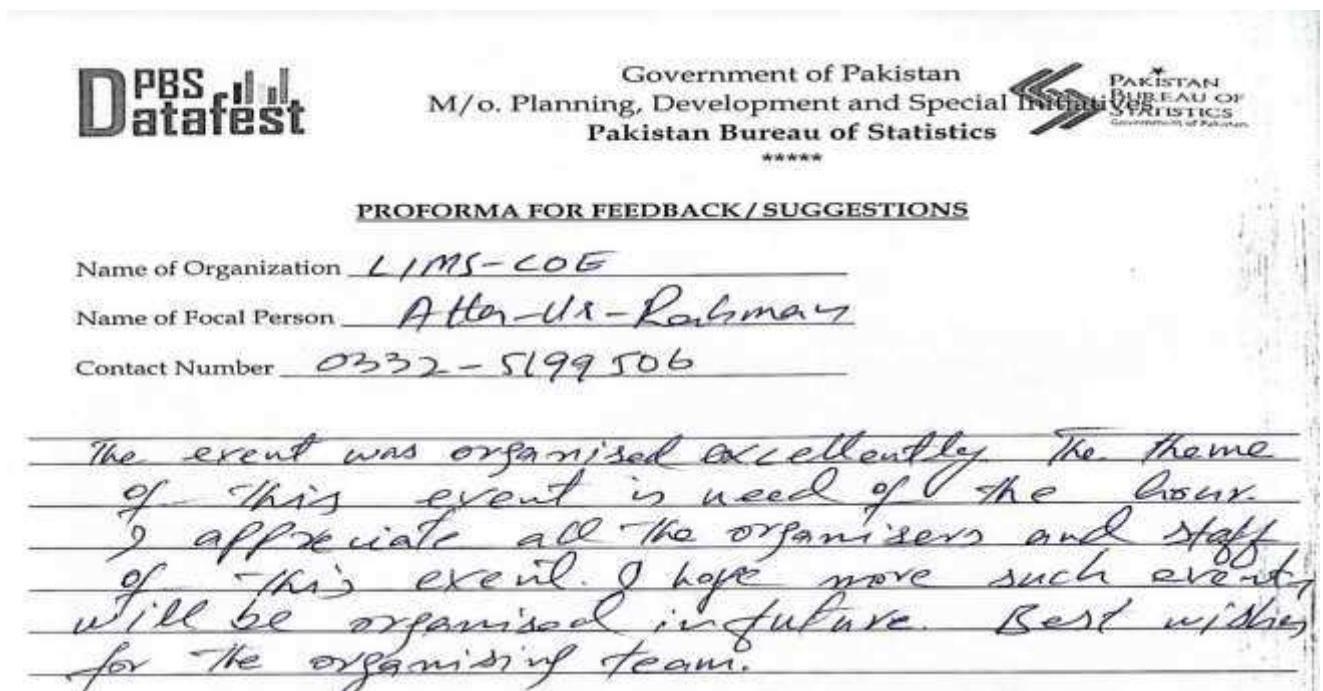 PBS
Datafest
Government of Pakistan
M/o. Planning, Development and Special Initiatives
Pakistan Bureau of Statistics
*****
PAKISTAN
BUREAU OF
STATISTICS
Government of Pakistan
PROFORMA FOR FEEDBACK/SUGGESTIONS
Name of Organization LIMS-COE
Name of Focal Person Atta-Ur-Rahman
Contact Number 0332-5199506
The event was organised excellently The theme
of this event is need of the hour.
I appreciate all the organisers and staff
of this event. I hope more such events
will be organised in future. Best wishes
for the organising team.